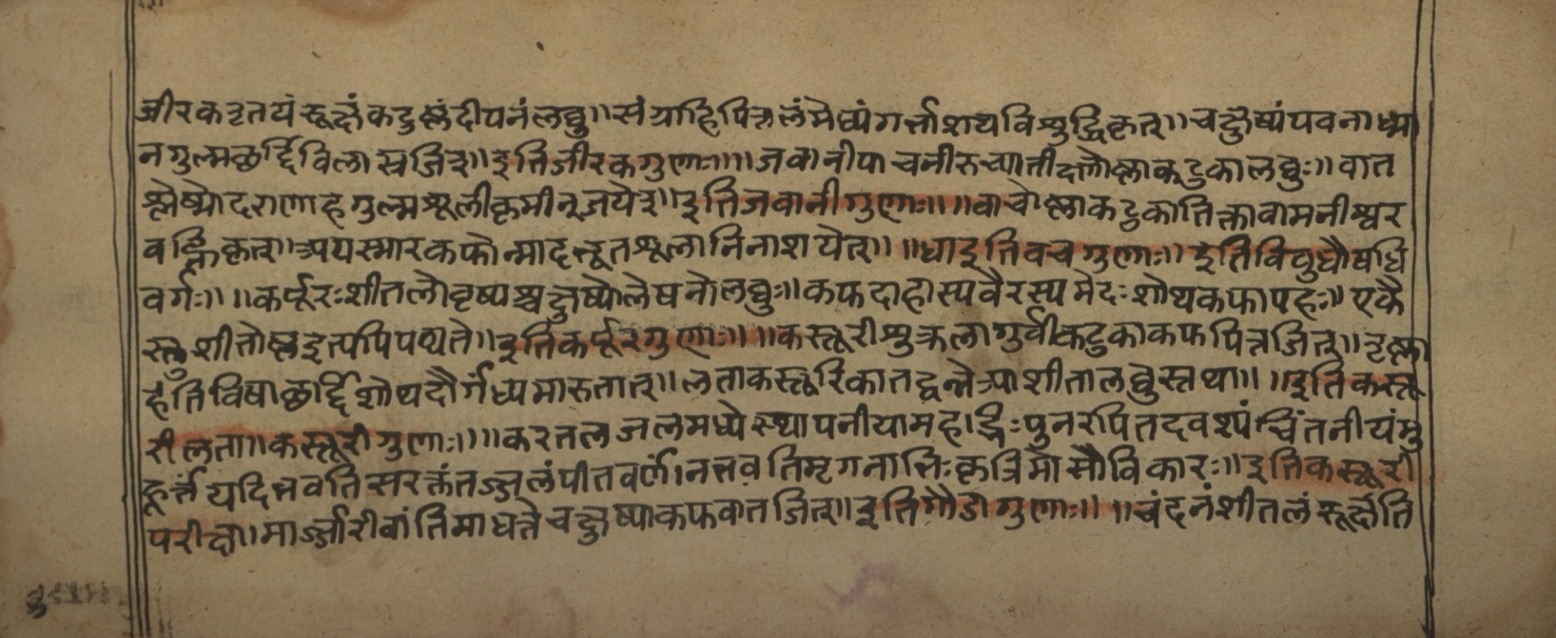 जीरकतृतयं रूक्षं कटुष्णं दीपनं लघु॥ संग्राहि पित्तलं मेध्यं गर्भाशयविशुद्धिकृत्॥ चक्षुष्यं पवनाध्मा
न गुल्मछर्द्दिविलास्रजित्॥ इति जीरकगुणाः॥॥ जवानी पाचनी रुच्या तीक्ष्णोष्णा कटुका लघुः॥ वात
श्लेष्मोदराणाह गुल्मशूलीकृमीन् जयेत्॥ इति जवानीगुणाः॥॥ वाचोष्णा कटुका तिक्ता वामनी श्वर
वह्निकृत्॥ अपस्मारकफोन्मादभूतशूलानि नाशयेत्॥ ॥ इति वचगुणाः॥ इति विबुधौषधि
वर्गः॥ ॥ कर्पूरः शीतलो वृष्यश्चक्षुष्यो लेषनो लघुः॥ कफदाहास्यवैरस्यमेदःशोथकफापहः॥ एकै
स्तु शीतोष्ण इत्यपि पठ्यते॥ इति कर्पूरगुणाः॥ ॥ कस्तूरी शुक्रला गुर्वी कटुका कफपित्तजित्॥ तृष्णा
हंति विषाछर्द्दिशोथदौर्गंध्यमारुतात्॥ लताकस्तूरिका तद्वन्नेत्र्या शीता लघुस्तथा॥ ॥ इति कस्तू
री लता॥ कस्तूरीगुणाः॥॥ करतलजलमध्ये स्थापनीया महद्भिः पुनरपि तदवश्यं चिंतनीयं मु
हूर्त्तं यदि भवति सरक्तं तज्जलं पीतवर्णं। न भवति मृगनाभिः कृत्रिमो सौ विकारः॥ इति कस्तूरी
परीक्षा॥ मार्ज्जारीवांतिमाधत्ते चक्षुष्या कफवातजित्॥ इति गौडीगुणाः॥ ॥ चंदनं शीतलं रूक्षं ति